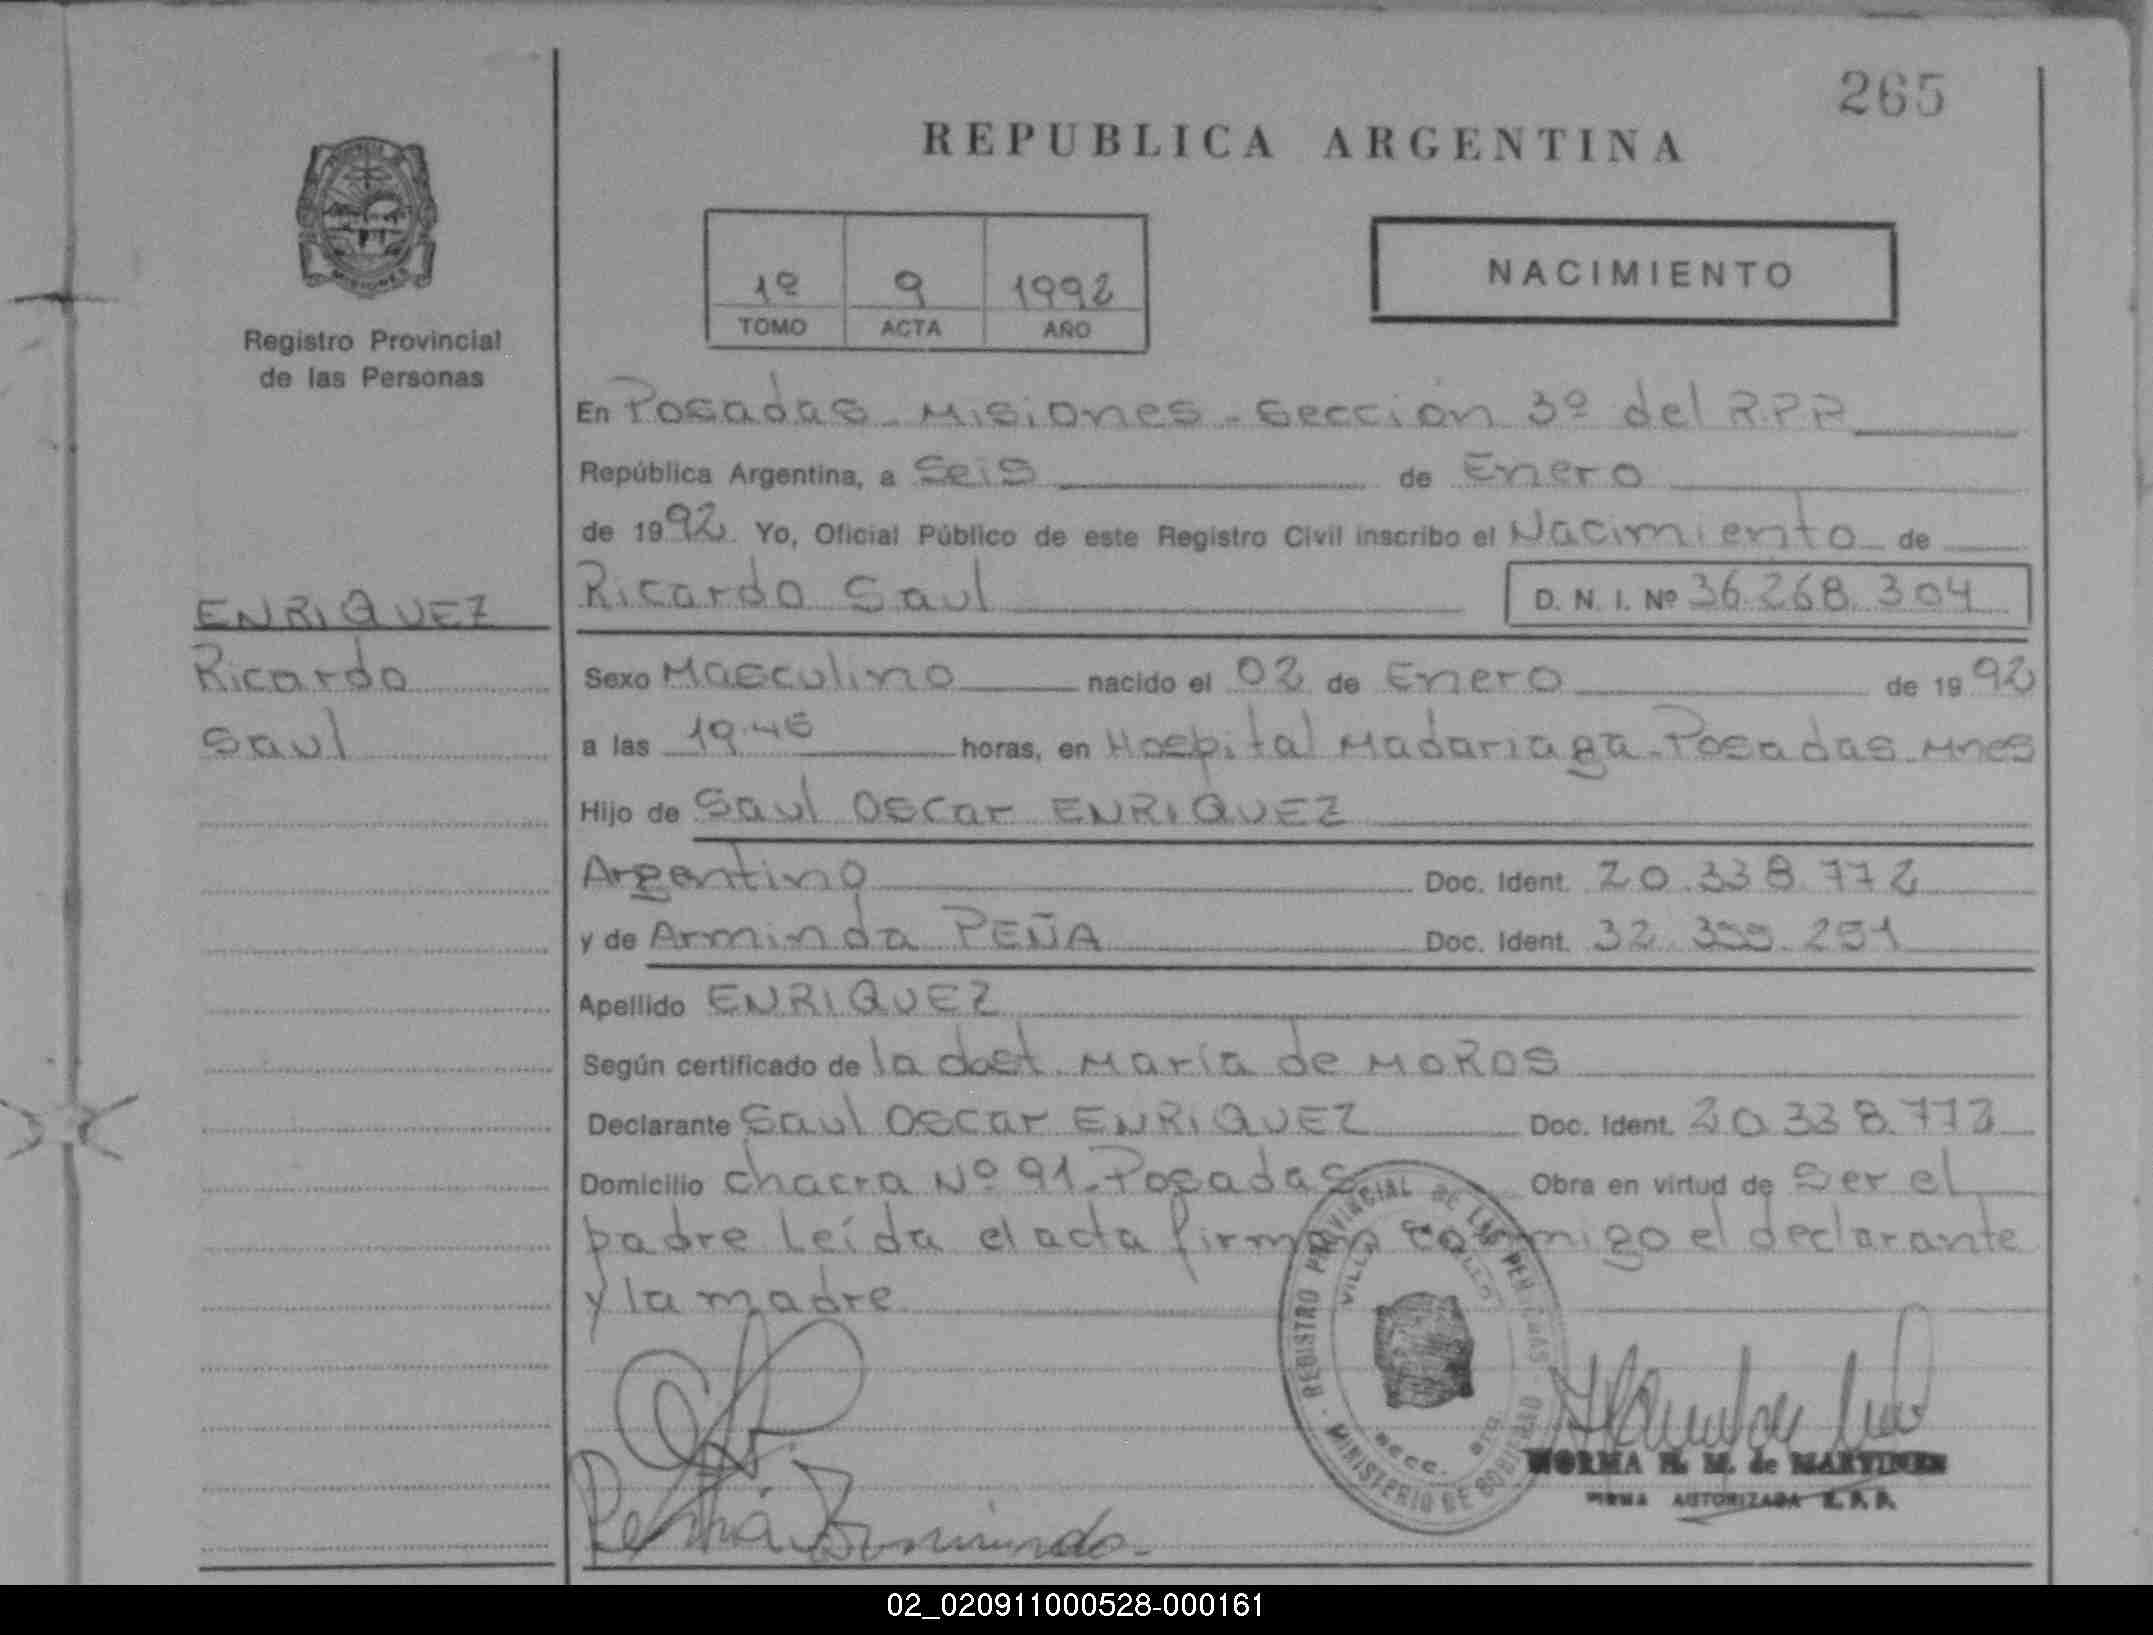 265
REPUBLICA ARGENTINA
1º 9 1992
TOMO ACTA AÑO
NACIMIENTO
Registro Provincial
de las Personas
En Posadas - Misiones - Sección 3º del R.P.P.
República Argentina, a Seis de Enero
de 1992 Yo, Oficial Público de este Registro Civil inscribo el Nacimiento de
Ricardo Saul D. N. I. Nº 36.268.304
ENRIQUEZ
Ricardo
Saul
Sexo Masculino nacido el 02 de Enero de 1992
a las 19.45 horas, en Hospital Madariaga - Posadas - Mnes
Hijo de Saul Oscar ENRIQUEZ
Argentino Doc. Ident. 20.338.772
y de Arminda PEÑA Doc. Ident. 32.399.251
Apellido ENRIQUEZ
Según certificado de la doct. María de MOROS
Declarante Saul Oscar ENRIQUEZ Doc. Ident. 20.338.772
Domicilio chacra Nº 91 - Posadas Obra en virtud de Ser el
padre Leída el acta firman conmigo el declarante
y la madre
REGISTRO PROVINCIAL DE LAS PERSONAS
MINISTERIO DE GOBIERNO
Peña Arminda
NORMA H. M. de MARTINEZ
FIRMA AUTORIZADA R.P.P.
02_020911000528-000161